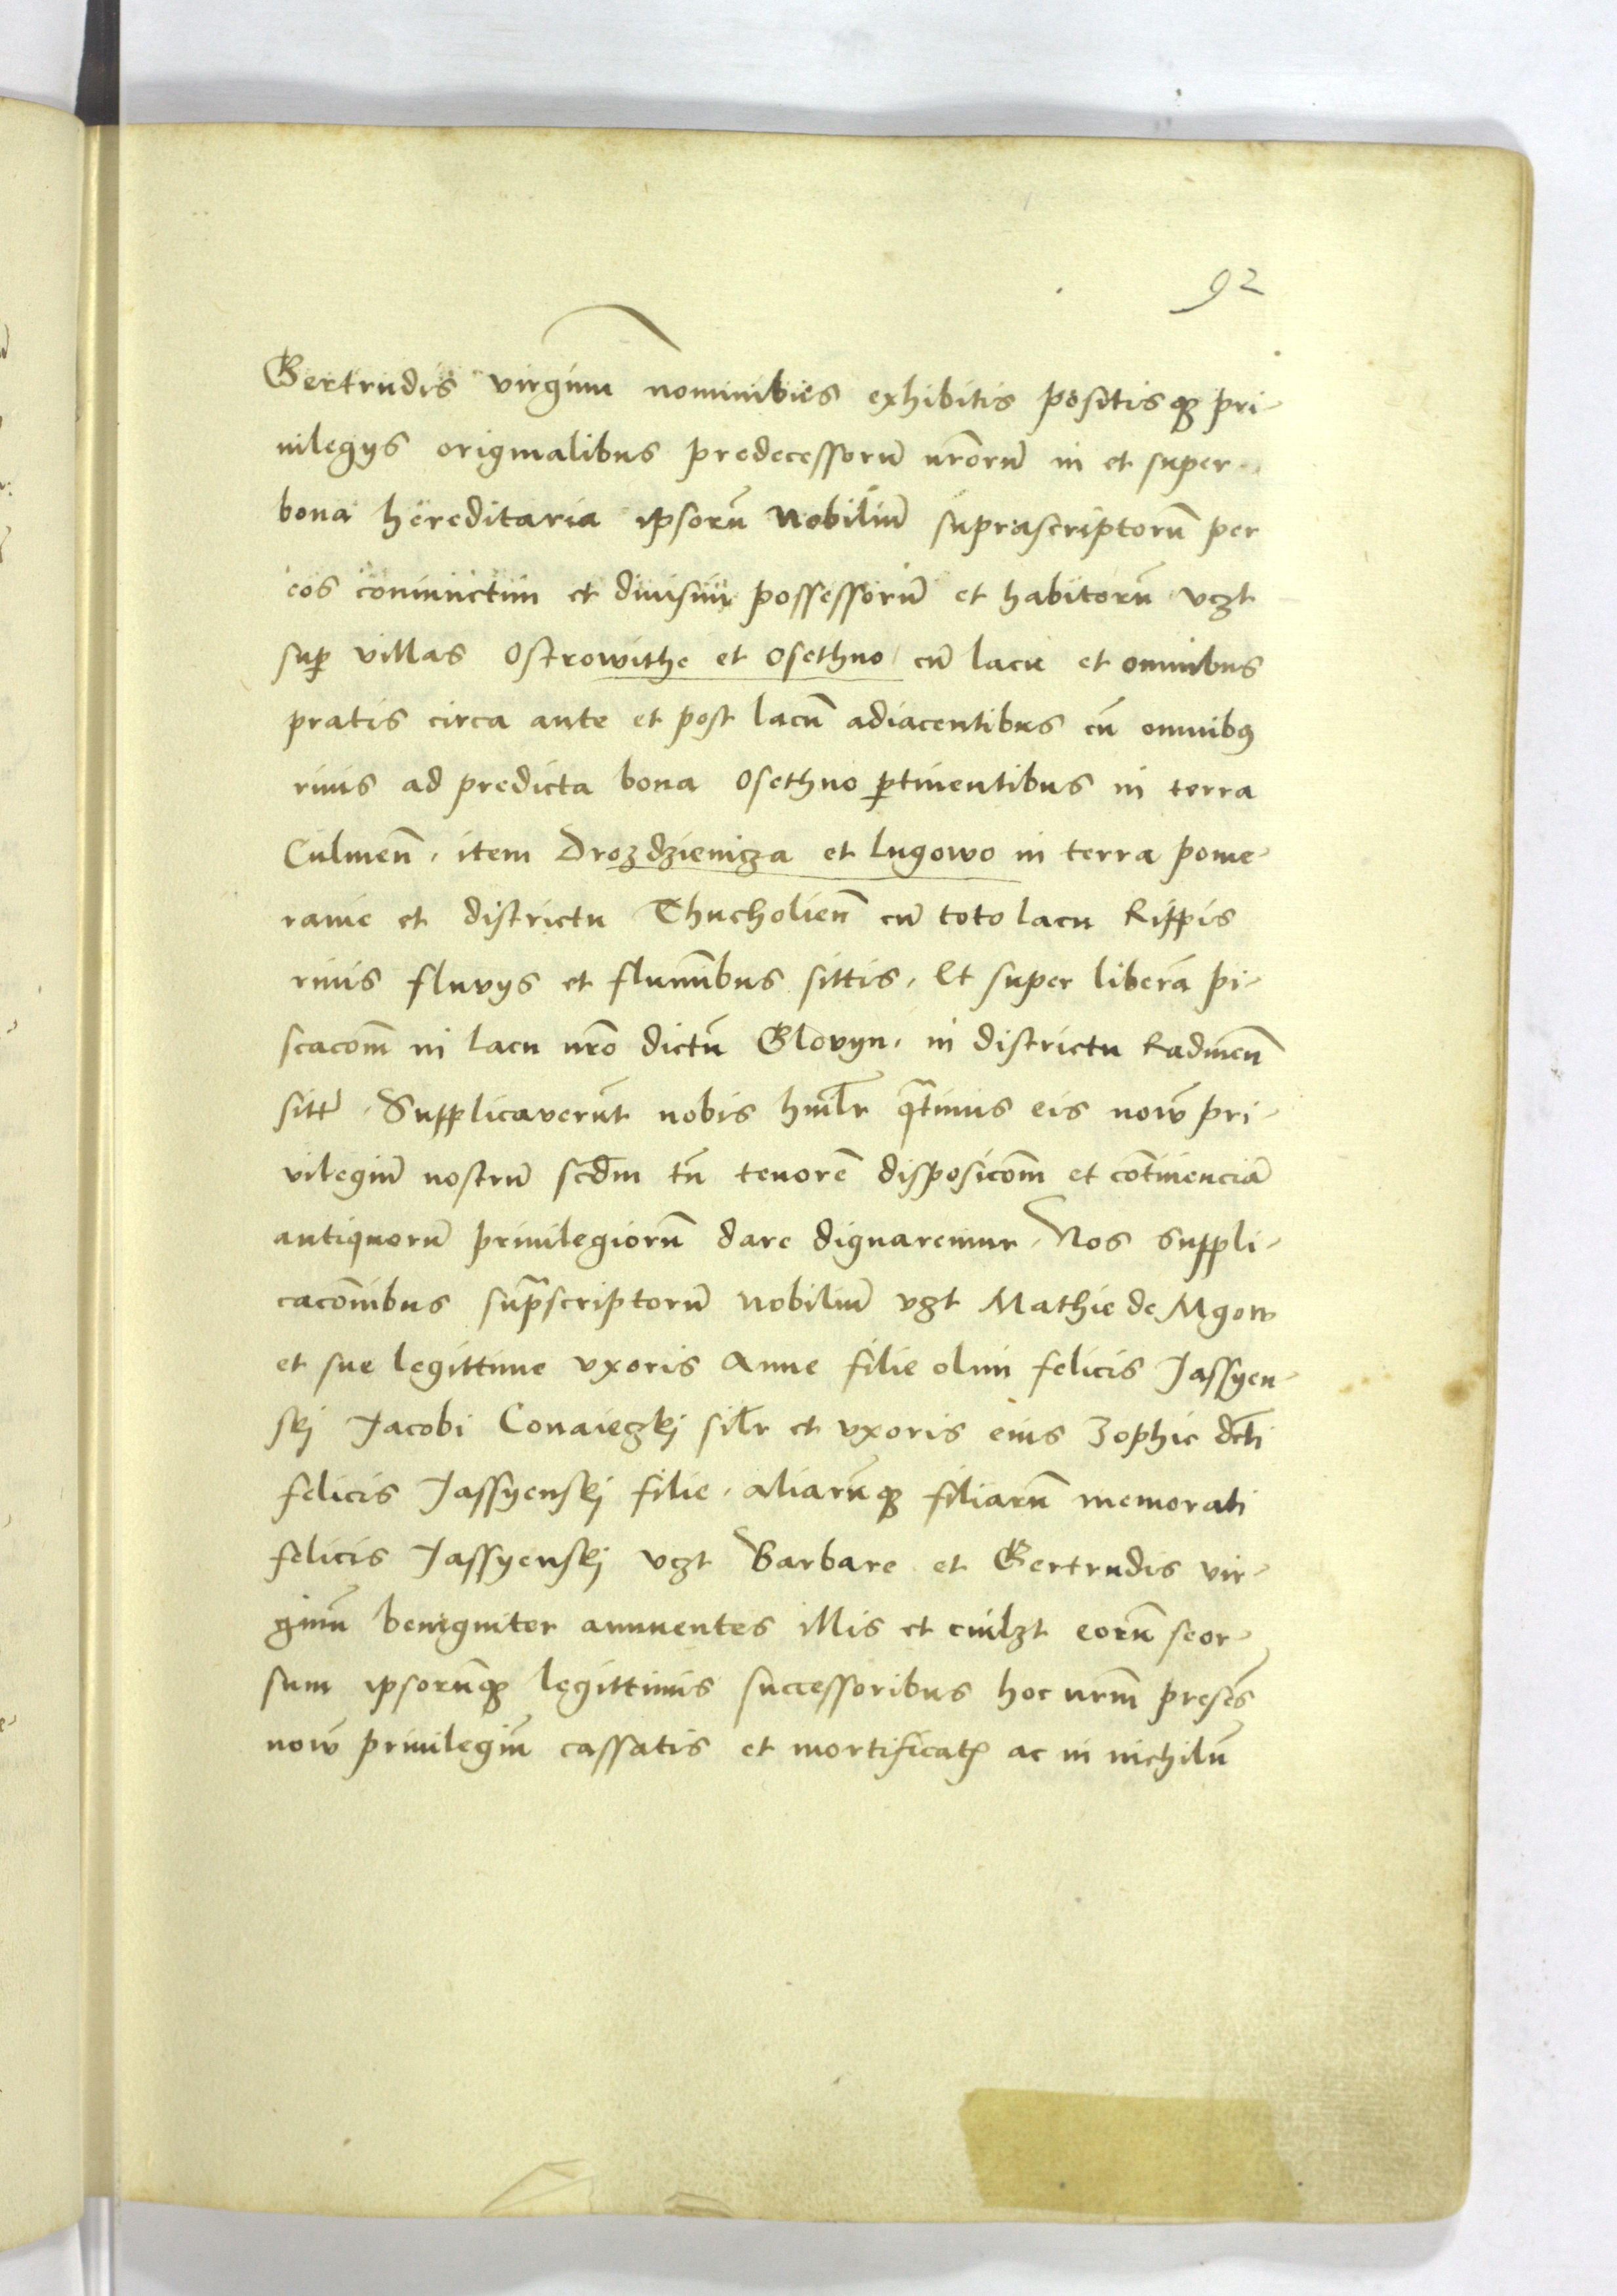 92
Gertrudis virginum nominibus exhibitis positisqꝫ pri-
uilegys originalibus predecessorū nrōrū in et super
bona hereditaria ipsorū Nobiliū suprascriptorū per
eos coniunctim et diuisim possessorū et habitorū vcꝫt
suꝑ villas Ostrowithe et Osethno cū lacu et omnibus
pratis circa ante et post lacū adiacentibus cū omnibꝰ
riuis ad predicta bona Osethno ꝑtinentibus in terra
Culmeñ, item Drozdzienicza et Lugowo in terra pome-
ranie et districtu Thucholieñ cū toto lacu Rippis
riuis fluvys et fluminibus sittis, Et super liberā pi-
scacōm in lacu nrō dictū Glovyn, in districtu Radineñ
sitt. Supplicaverūt nobis hmlr qatinus eis novū pri-
vilegiū nostrū scdm tn̄ tenorē disposicōm et cōtinenciā
antiquorū priuilegiorū dare dignaremur, Nos suppli-
cacōnibus supascriptorū Nobiliū vꝫt Mathie de Mgow
et sue legittime vxoris Anne filie olim felicis Jassyen-
skj Jacobi Conaieczkj silr et vxoris eius Zophie dcti
felicis Jassyenskj filie, aliarūqꝫ filiarū memorati
felicis Jassyenskj vcꝫt Barbare et Gertrudis vir-
ginū benigniter annuentes illis et cuilꝫt eorū seor-
sum ipsorūqꝫ legittimis successoribus hoc nrm̄ presēs
novū priuilegiū cassatis et mortificatꝭ ac in nichilū